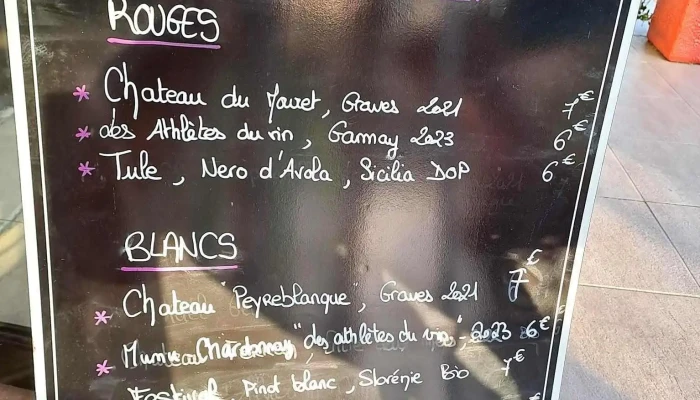 ROUGES
* Chateau du Mouret, Graves 2021 7€
* des Athlètes du vin, Gamay 2023 6€
* Tule, Nero d'Avola, Sicilia DOP 6€
BLANCS
* Chateau "Peyreblanque", Graves 2021 7€
* Chardonnay "des athlètes du vin", 2023 6€
Pinot blanc, Slorénie Bio 7€